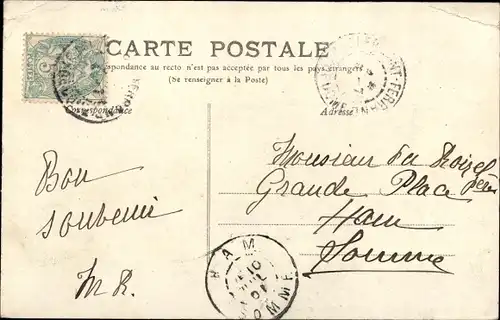 CARTE POSTALE
Correspondance au recto n'est pas acceptée par tous les pays étrangers
(Se renseigner à la Poste)
Correspondance
Adresse
CLERMONT-FERRAND
Bon
souvenir
M R.
Monsieur du
Grande Place
Ham
Somme
HAM
SOMME